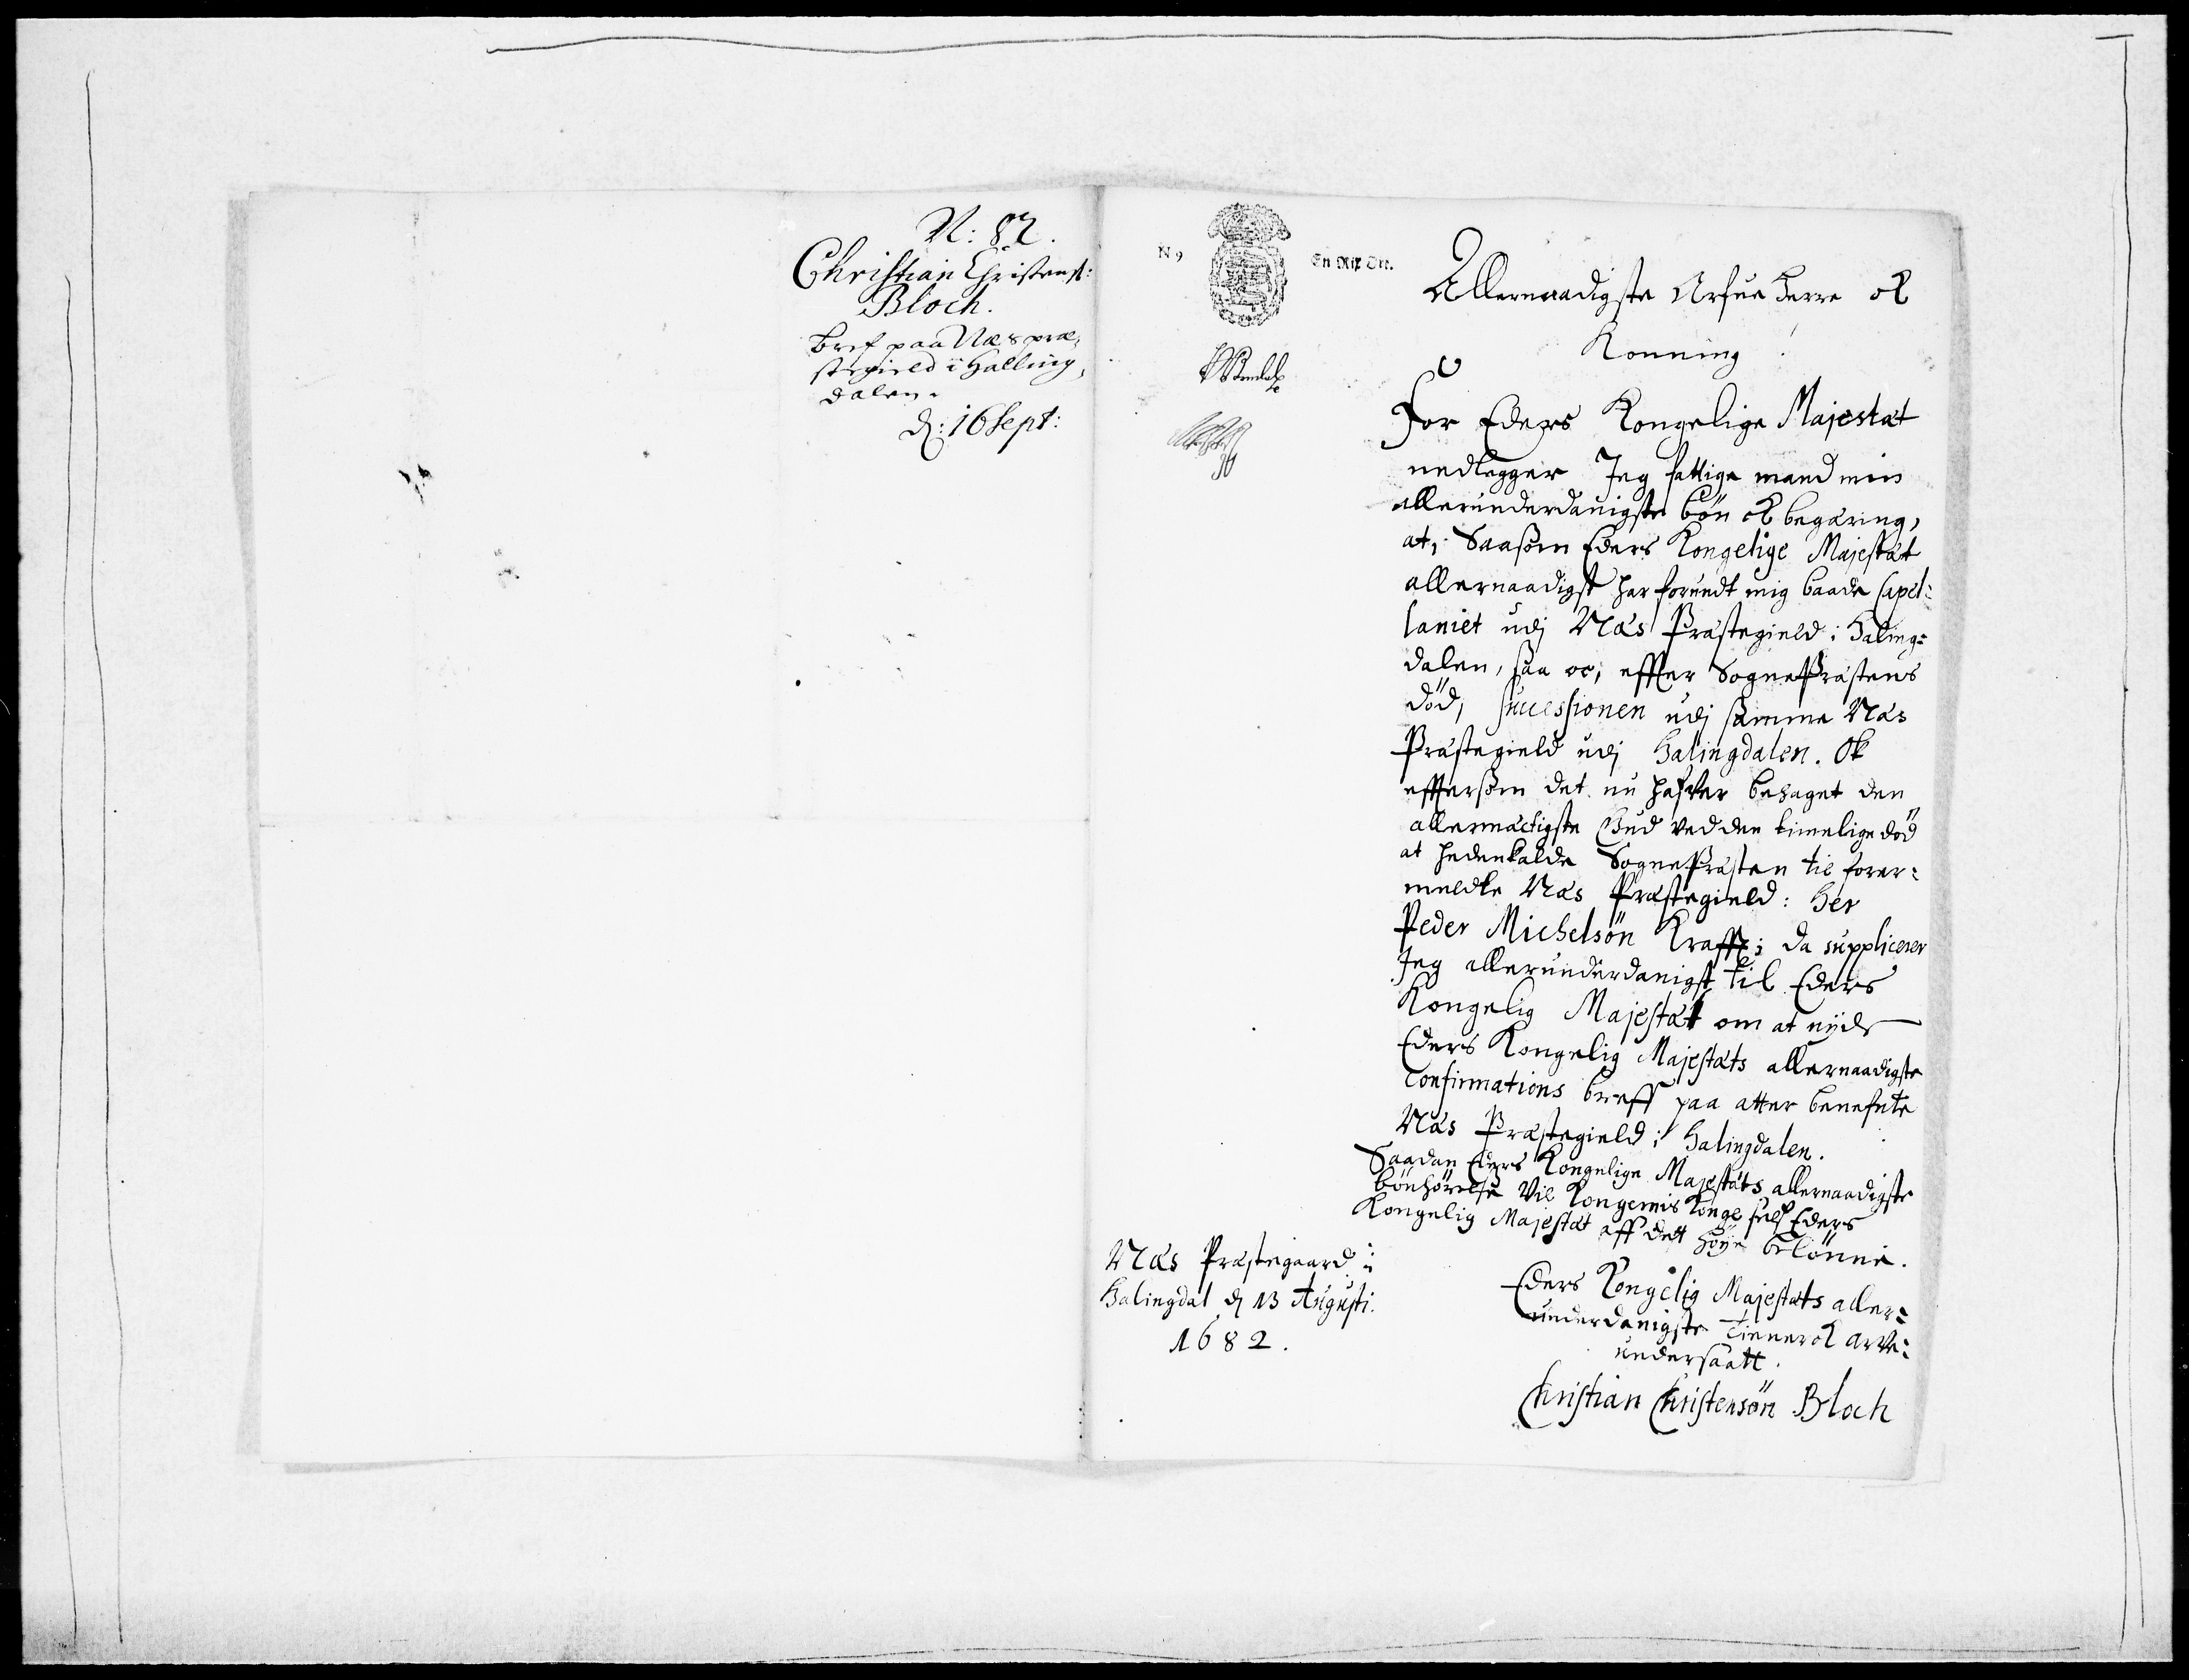 N: 82.
Christian Christens:
Bloch.
Bref paa Næs præ,
stegield i Halling,
dalen.
d: 16 Sept:
N 9
En Rix Ort.
Allernaadigste Arfue Herre ok
Konning!
For Eders Kongelige Majestæt
nedlegger Jeg fattige mand min
allerunderdanigste bön ok begæring,
at, Saasom Eders Kongelige Majestæt
allernaadigst har forundt mig baade Capel:
laniet udj Næs Præstegield i Haling:
dalen, saa oc, effter SognePræstens
död, successionen udj samme Næs
Præstegield udj Halingdalen. Ok
efftersom det nu hafver behaget den
allermæctigste Gud ved den timelige död
at hedenkalde SognePræsten til forer:
meldte Næs Præstegield: Her
Peder Michelsön Krafft; da supplicerer
Jeg allerunderdanigst til Eders
Kongelig Majestæt om at nijde
Eders Kongelig Majestæts allernaadigste
Confirmations breff paa atter benefnte
Næs Præstegield i Halingdalen.
Saadan Eders Kongelige Majestæts allernaadigste
bönhörelse Vil Kongernis Konge self Eders
Kongelig Majestæt aff dett Höye belönne.
Næs Præstegaard i
Halingdal d 13 Augusti.
1682.
Eders Kongelig Majestæts aller:
underdanigste Tienner ok arve:
undersaatt.
Christian Christensön Bloch